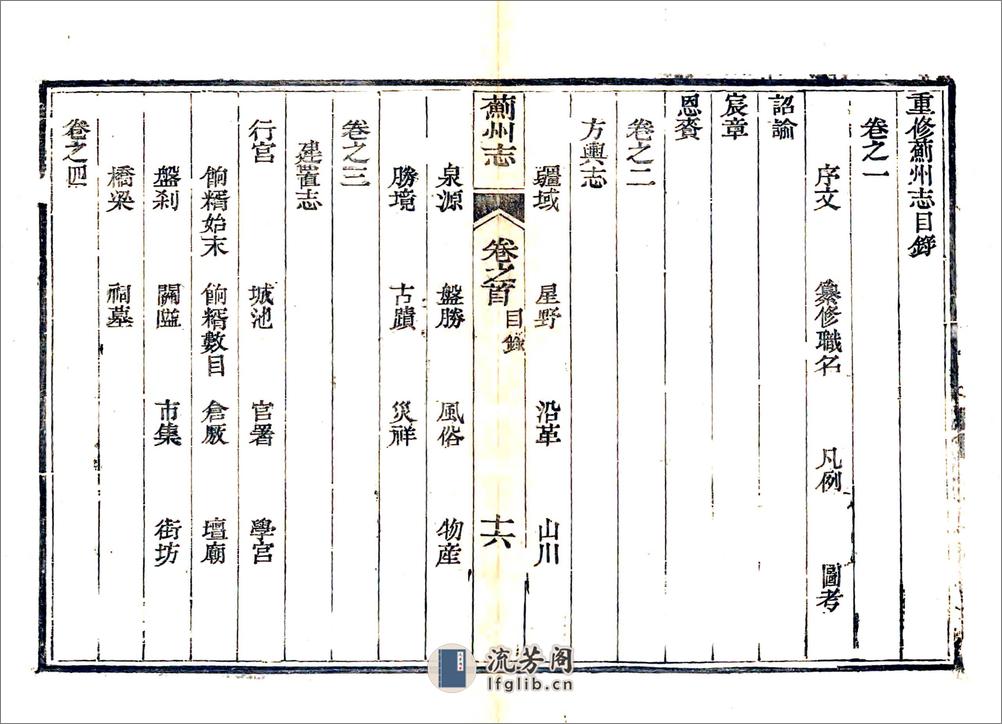 重修薊州志目錄
卷之一
序文 纂修職名 凡例 圖考
詔諭
宸章
恩賚
卷之二
方輿志
疆域 星野 沿革 山川
薊州志 卷之首 目錄 十六
泉源 盤勝 風俗 物産
勝境 古蹟 災祥
卷之三
建置志
行宮 城池 官署 學宮
餉糈始末 餉糈數目 倉厫 壇廟
盤刹 關隘 市集 街坊
橋梁 祠墓
卷之四
流芳阁
lfglib.cn